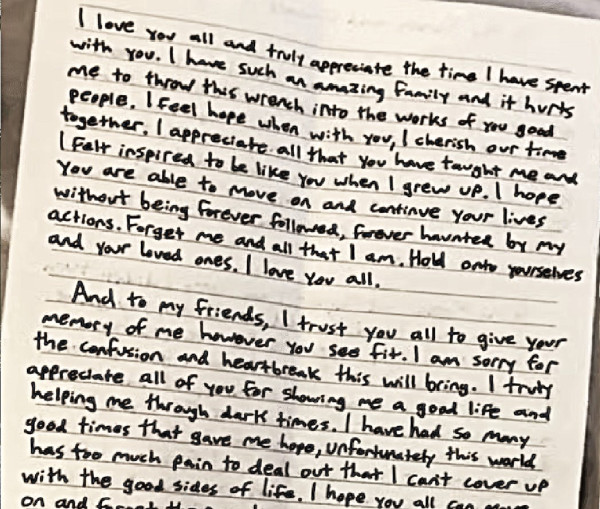 I love you all and truly appreciate the time I have spent
with you. I have such an amazing family and it hurts
me to throw this wrench into the works of you good
people. I feel hope when with you, I cherish our time
together. I appreciate all that you have taught me and
I felt inspired to be like you when I grew up. I hope
you are able to move on and continue your lives
without being forever followed, forever haunted by my
actions. Forget me and all that I am. Hold onto yourselves
and your loved ones. I love you all.
And to my friends, I trust you all to give your
memory of me however you see fit. I am sorry for
the confusion and heartbreak this will bring. I truly
appreciate all of you for showing me a good life and
helping me through dark times. I have had so many
good times that gave me hope, unfortunately this world
has too much pain to deal out that I can't cover up
with the good sides of life. I hope you all can
on and forget